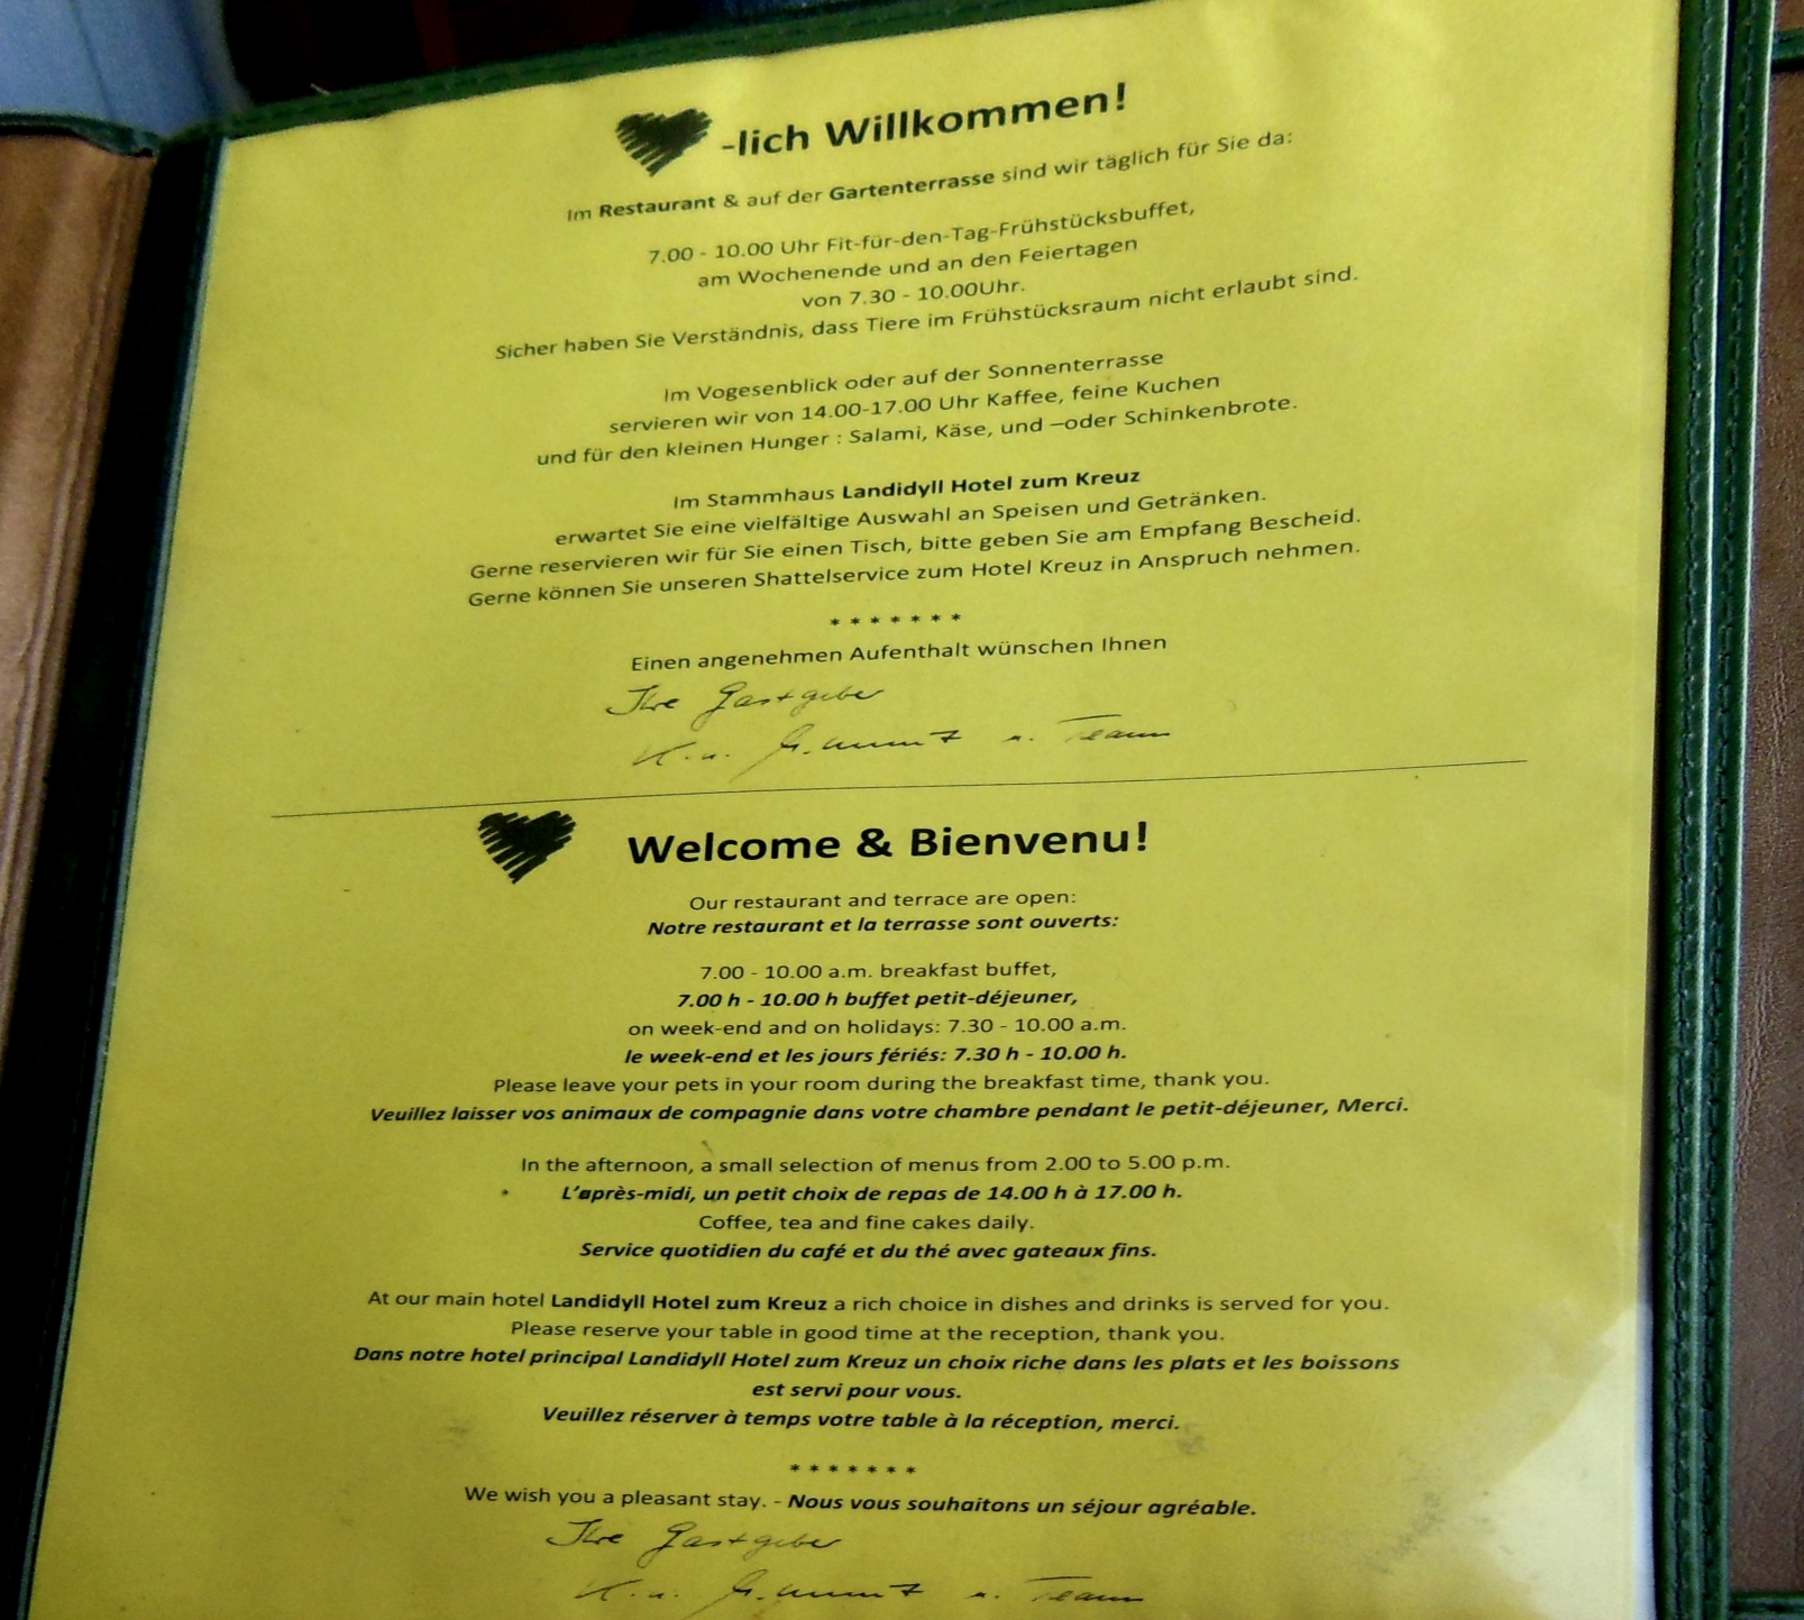 -lich Willkommen!
Im Restaurant & auf der Gartenterrasse sind wir täglich für Sie da:
7.00 - 10.00 Uhr Fit-für-den-Tag-Frühstücksbuffet,
am Wochenende und an den Feiertagen
von 7.30 - 10.00Uhr.
Sicher haben Sie Verständnis, dass Tiere im Frühstücksraum nicht erlaubt sind.
Im Vogesenblick oder auf der Sonnenterrasse
servieren wir von 14.00-17.00 Uhr Kaffee, feine Kuchen
und für den kleinen Hunger : Salami, Käse, und –oder Schinkenbrote.
Im Stammhaus Landidyll Hotel zum Kreuz
erwartet Sie eine vielfältige Auswahl an Speisen und Getränken.
Gerne reservieren wir für Sie einen Tisch, bitte geben Sie am Empfang Bescheid.
Gerne können Sie unseren Shattelservice zum Hotel Kreuz in Anspruch nehmen.
* * * * * * *
Einen angenehmen Aufenthalt wünschen Ihnen
Ihre Gastgeber
K. u. u. Team
Welcome & Bienvenu!
Our restaurant and terrace are open:
Notre restaurant et la terrasse sont ouverts:
7.00 - 10.00 a.m. breakfast buffet,
7.00 h - 10.00 h buffet petit-déjeuner,
on week-end and on holidays: 7.30 - 10.00 a.m.
le week-end et les jours fériés: 7.30 h - 10.00 h.
Please leave your pets in your room during the breakfast time, thank you.
Veuillez laisser vos animaux de compagnie dans votre chambre pendant le petit-déjeuner, Merci.
In the afternoon, a small selection of menus from 2.00 to 5.00 p.m.
L’après-midi, un petit choix de repas de 14.00 h à 17.00 h.
Coffee, tea and fine cakes daily.
Service quotidien du café et du thé avec gateaux fins.
At our main hotel Landidyll Hotel zum Kreuz a rich choice in dishes and drinks is served for you.
Please reserve your table in good time at the reception, thank you.
Dans notre hotel principal Landidyll Hotel zum Kreuz un choix riche dans les plats et les boissons
est servi pour vous.
Veuillez réserver à temps votre table à la réception, merci.
* * * * * * *
We wish you a pleasant stay. - Nous vous souhaitons un séjour agréable.
Ihre Gastgeber
K. u. u. Team